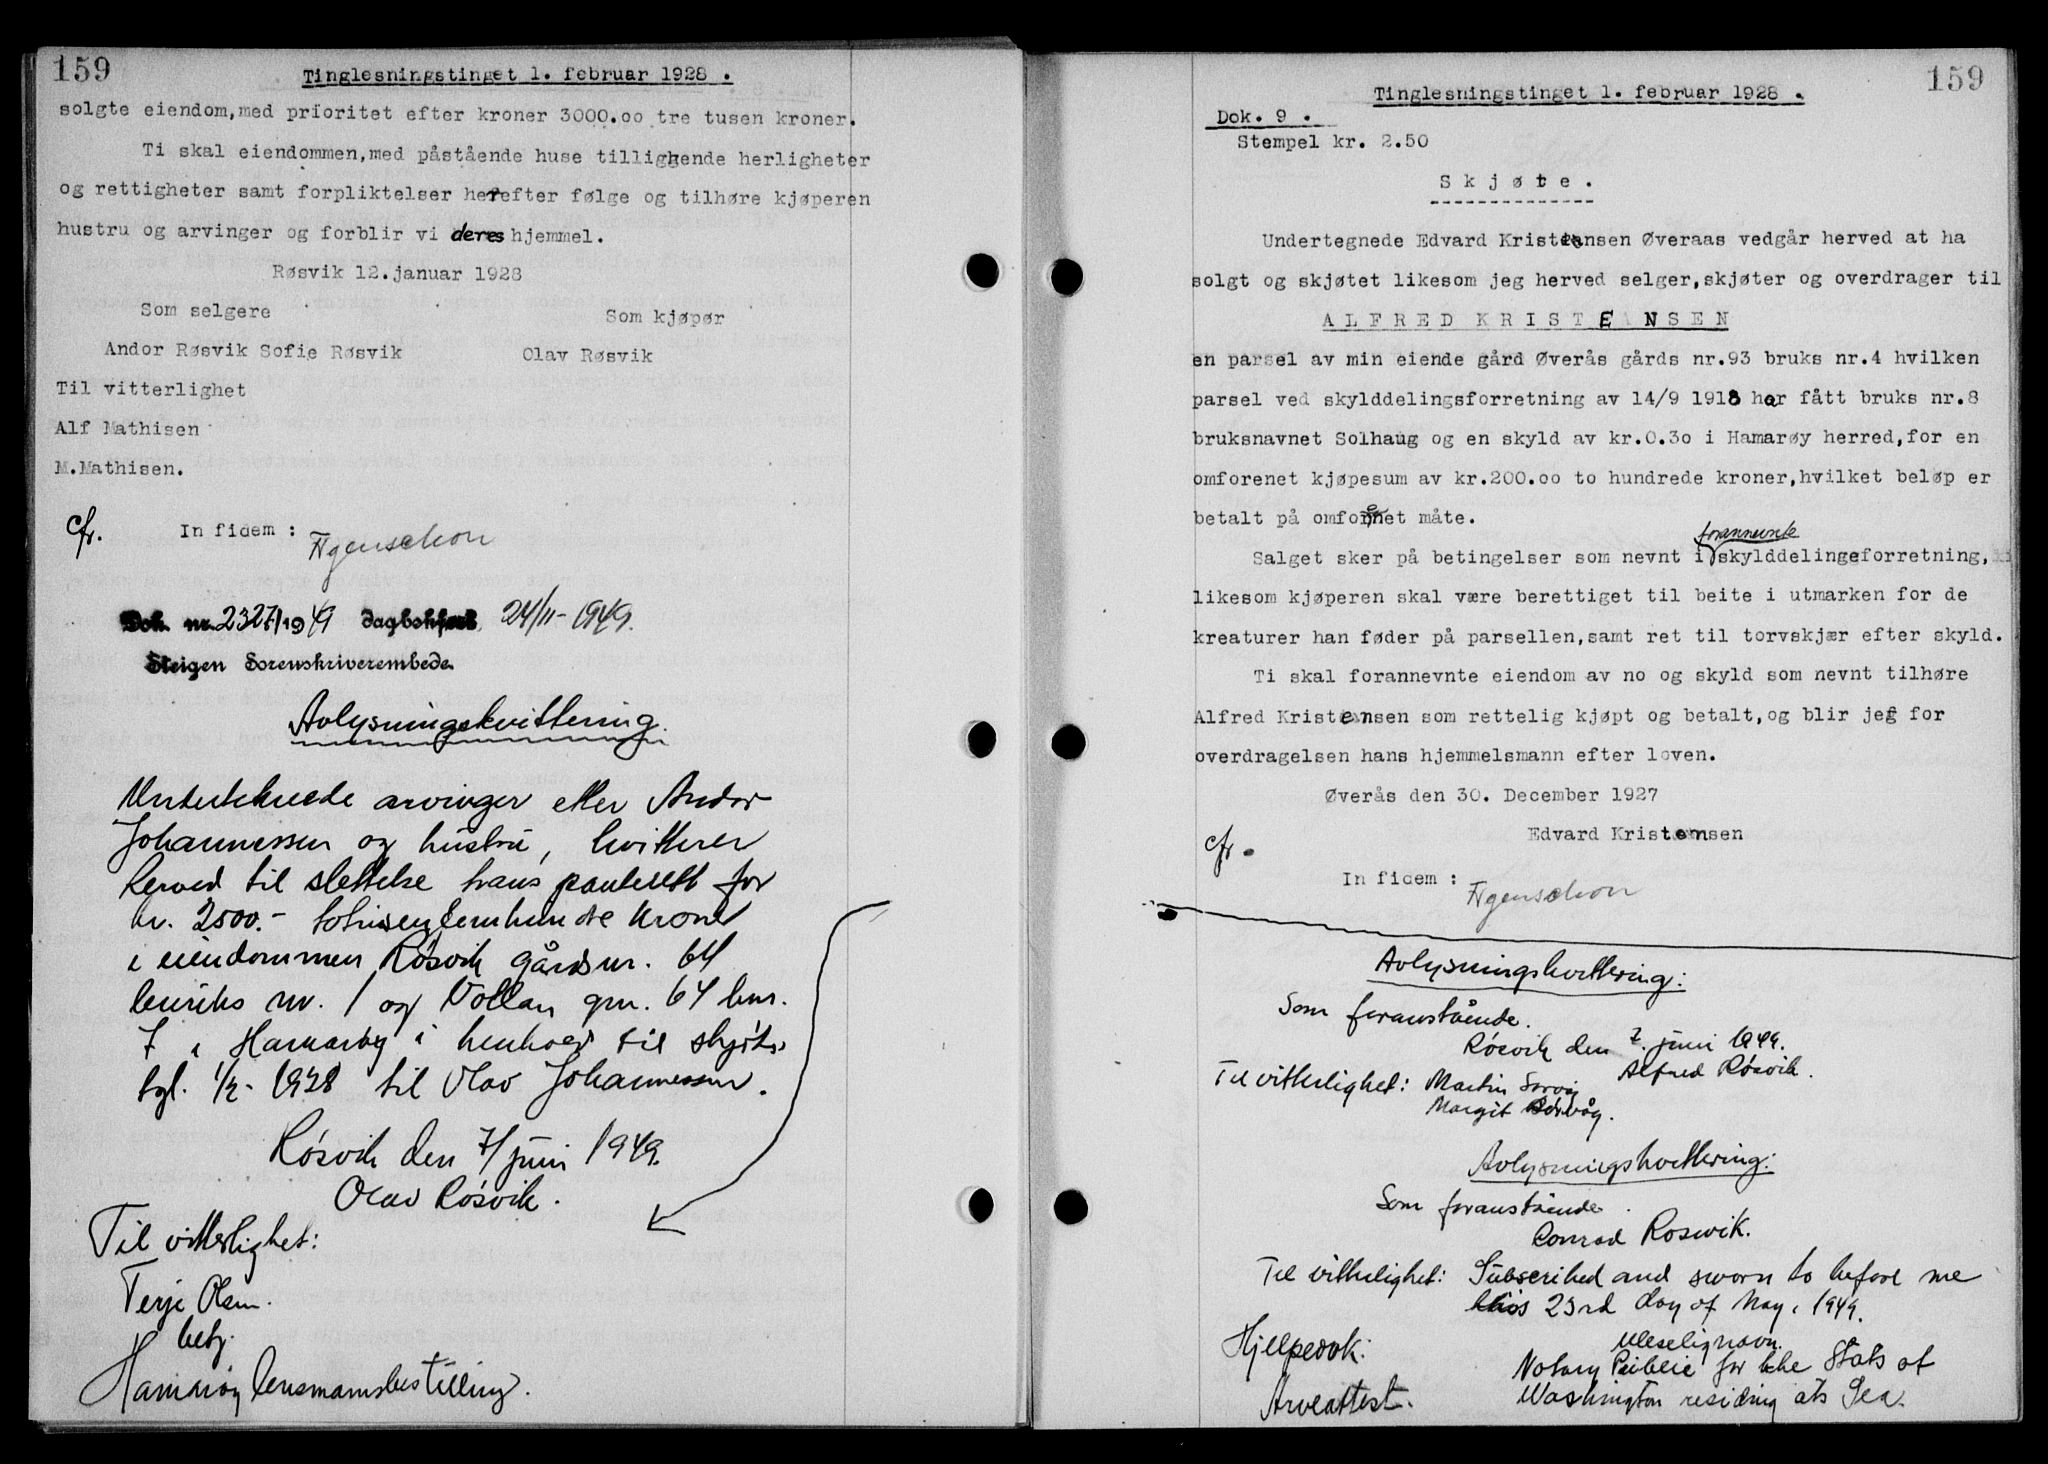 159
Tinglesningstinget 1. februar 1928 .
solgte eiendom,med prioritet efter kroner 3000.oo tre tusen kroner.
Ti skal eiendommen,med påstående huse tilliggende herligheter
og rettigheter samt forpliktelser herefter følge og tilhøre kjøperen
hustru og arvinger og forblir vi deres hjemmel.
Røsvik 12.januar 1928
Som selgere Som kjøpør
Andor Røsvik Sofie Røsvik Olav Røsvik
Til vitterlighet
Alf Mathisen
M.Mathisen.
cfr. In fidem :
Dok nr. 2327/1949 dagbokført 24/11-1949.
Steigen Sorenskriverembede.
Avlysningskvittering.
Undertegnede arvinger etter Andor
Johannessen og hustru, kvitterer
herved til slettelse hans panterett for
kr. 2500.- totusenfemhundre kroner
i eiendommen Røsvik gårdsnr. 64
bruks nr. 1 og Vollan gnr. 64 bnr.
7 i Hamarøy i henhold til skjøte
tgl. 1/2-1928 til Olav Johannessen.
Røsvik den 7/juni 1949.
Olav Røsvik.
Til vitterlighet:
Terje Olsen.
betj.
Hamarøy lensmannsbestilling.
159
Tinglesningstinget 1. februar 1928 .
Dok. 9 .
Stempel kr. 2.50
S k j ø t e .
Undertegnede Edvard Kristensen Øveraas vedgår herved at ha
solgt og skjøtet likesom jeg herved selger,skjøter og overdrager til
A L F R E D K R I S T E N S E N
en parsel av min eiende gård Øverås gårds nr.93 bruks nr.4 hvilken
parsel ved skylddelingsforretning av 14/9 1918 har fått bruks nr.8
bruksnavnet Solhaug og en skyld av kr.0.3o i Hamarøy herred,for en
omforenet kjøpesum av kr.200.oo to hundrede kroner,hvilket beløp er
betalt på omforenet måte.
forannevnte
Salget sker på betingelser som nevnt i skylddelingeforretning,
likesom kjøperen skal være berettiget til beite i utmarken for de
kreaturer han føder på parsellen,samt ret til torvskjær efter skyld.
Ti skal forannevnte eiendom av no og skyld som nevnt tilhøre
Alfred Kristensen som rettelig kjøpt og betalt,og blir jeg for
overdragelsen hans hjemmelsmann efter loven.
Øverås den 30. December 1927
Edvard Kristensen
cfr.
In fidem :
Avlysningskvittering:
Som foranstående.
Røsvik den 7. juni 1949.
Alfred Røsvik.
Til vitterlighet: Martin Sørvåg
Margit Sørvåg.
Avlysningskvittering:
Som foranstående.
Conrad Roswik.
Til vitterlighet: Subscribed and sworn to before me
this 23rd day of May, 1949.
Uleselig navn.
Hjelpedok: Notary Public for the State of
Arveattest. Washington residing ats Sea.